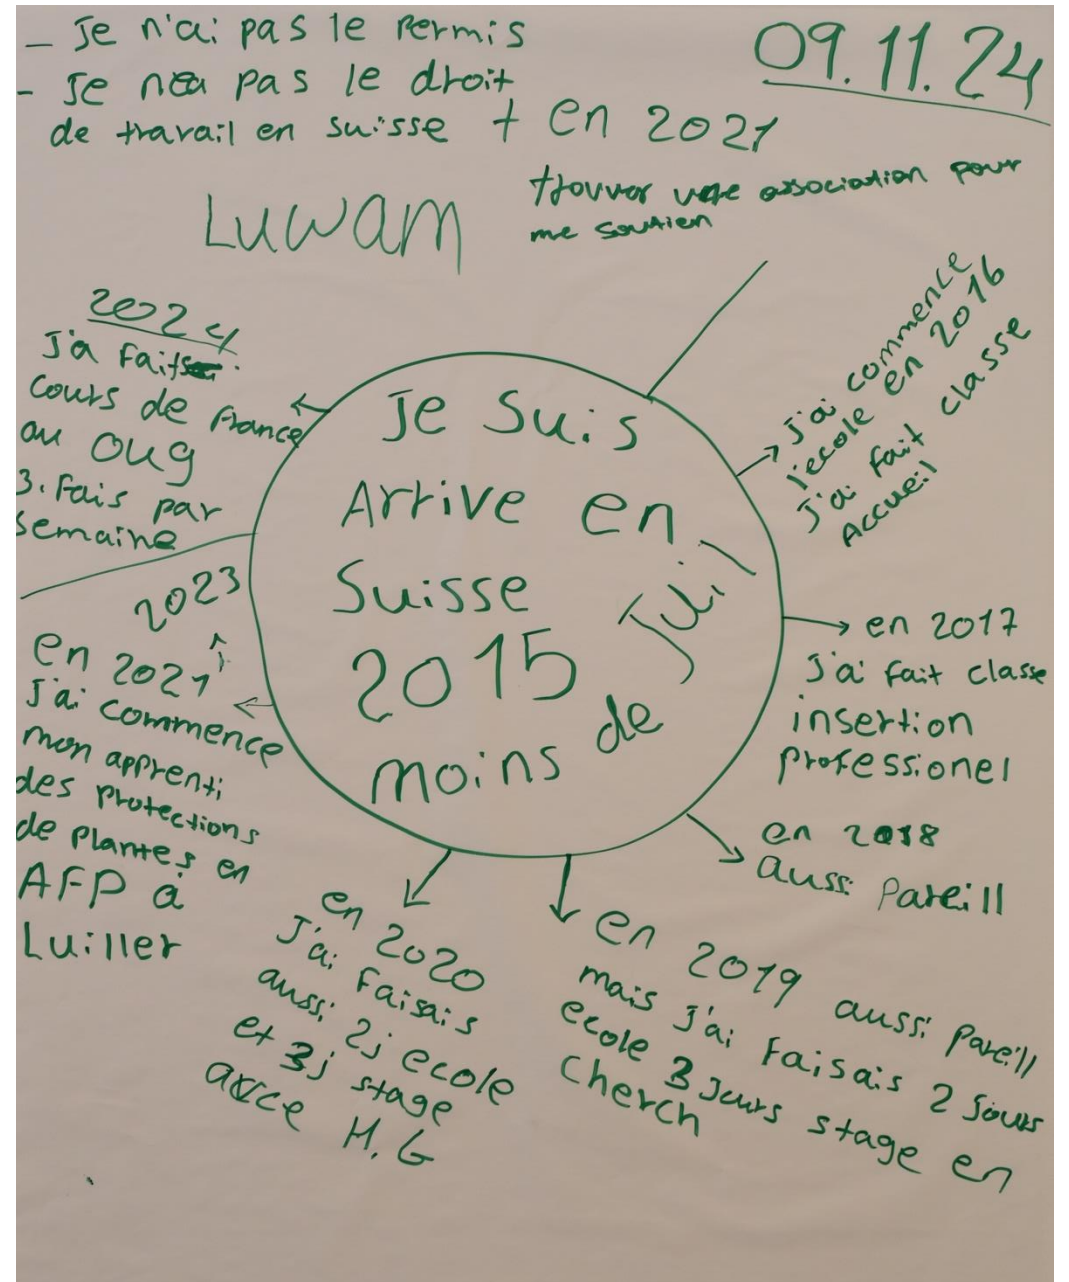 - Je n'ai pas le Permis
- Je nea pas le droit
de travail en suisse
09.11.24
+ en 2021
trouver une association pour
me soutien
Luwam
Je Suis
Arrive en
Suisse
2015
moins de Juil
J'ai commence
l'ecole en 2016
J'ai fait classe
Accueil
en 2017
J'ai fait classe
insertion
professionel
en 2018
aussi Pareill
en 2019 aussi Pareill
mais J'ai faisais 2 Jours
ecole 3 Jours stage en
Cherch
en 2020
J'ai faisais
aussi 2j ecole
et 3j stage
avce H.G
2023
en 2021
J'ai commence
mon apprenti
des protections
de plantes en
AFP à
Luiller
2024
J'a fait
cours de france
au oug
3. fais par
semaine